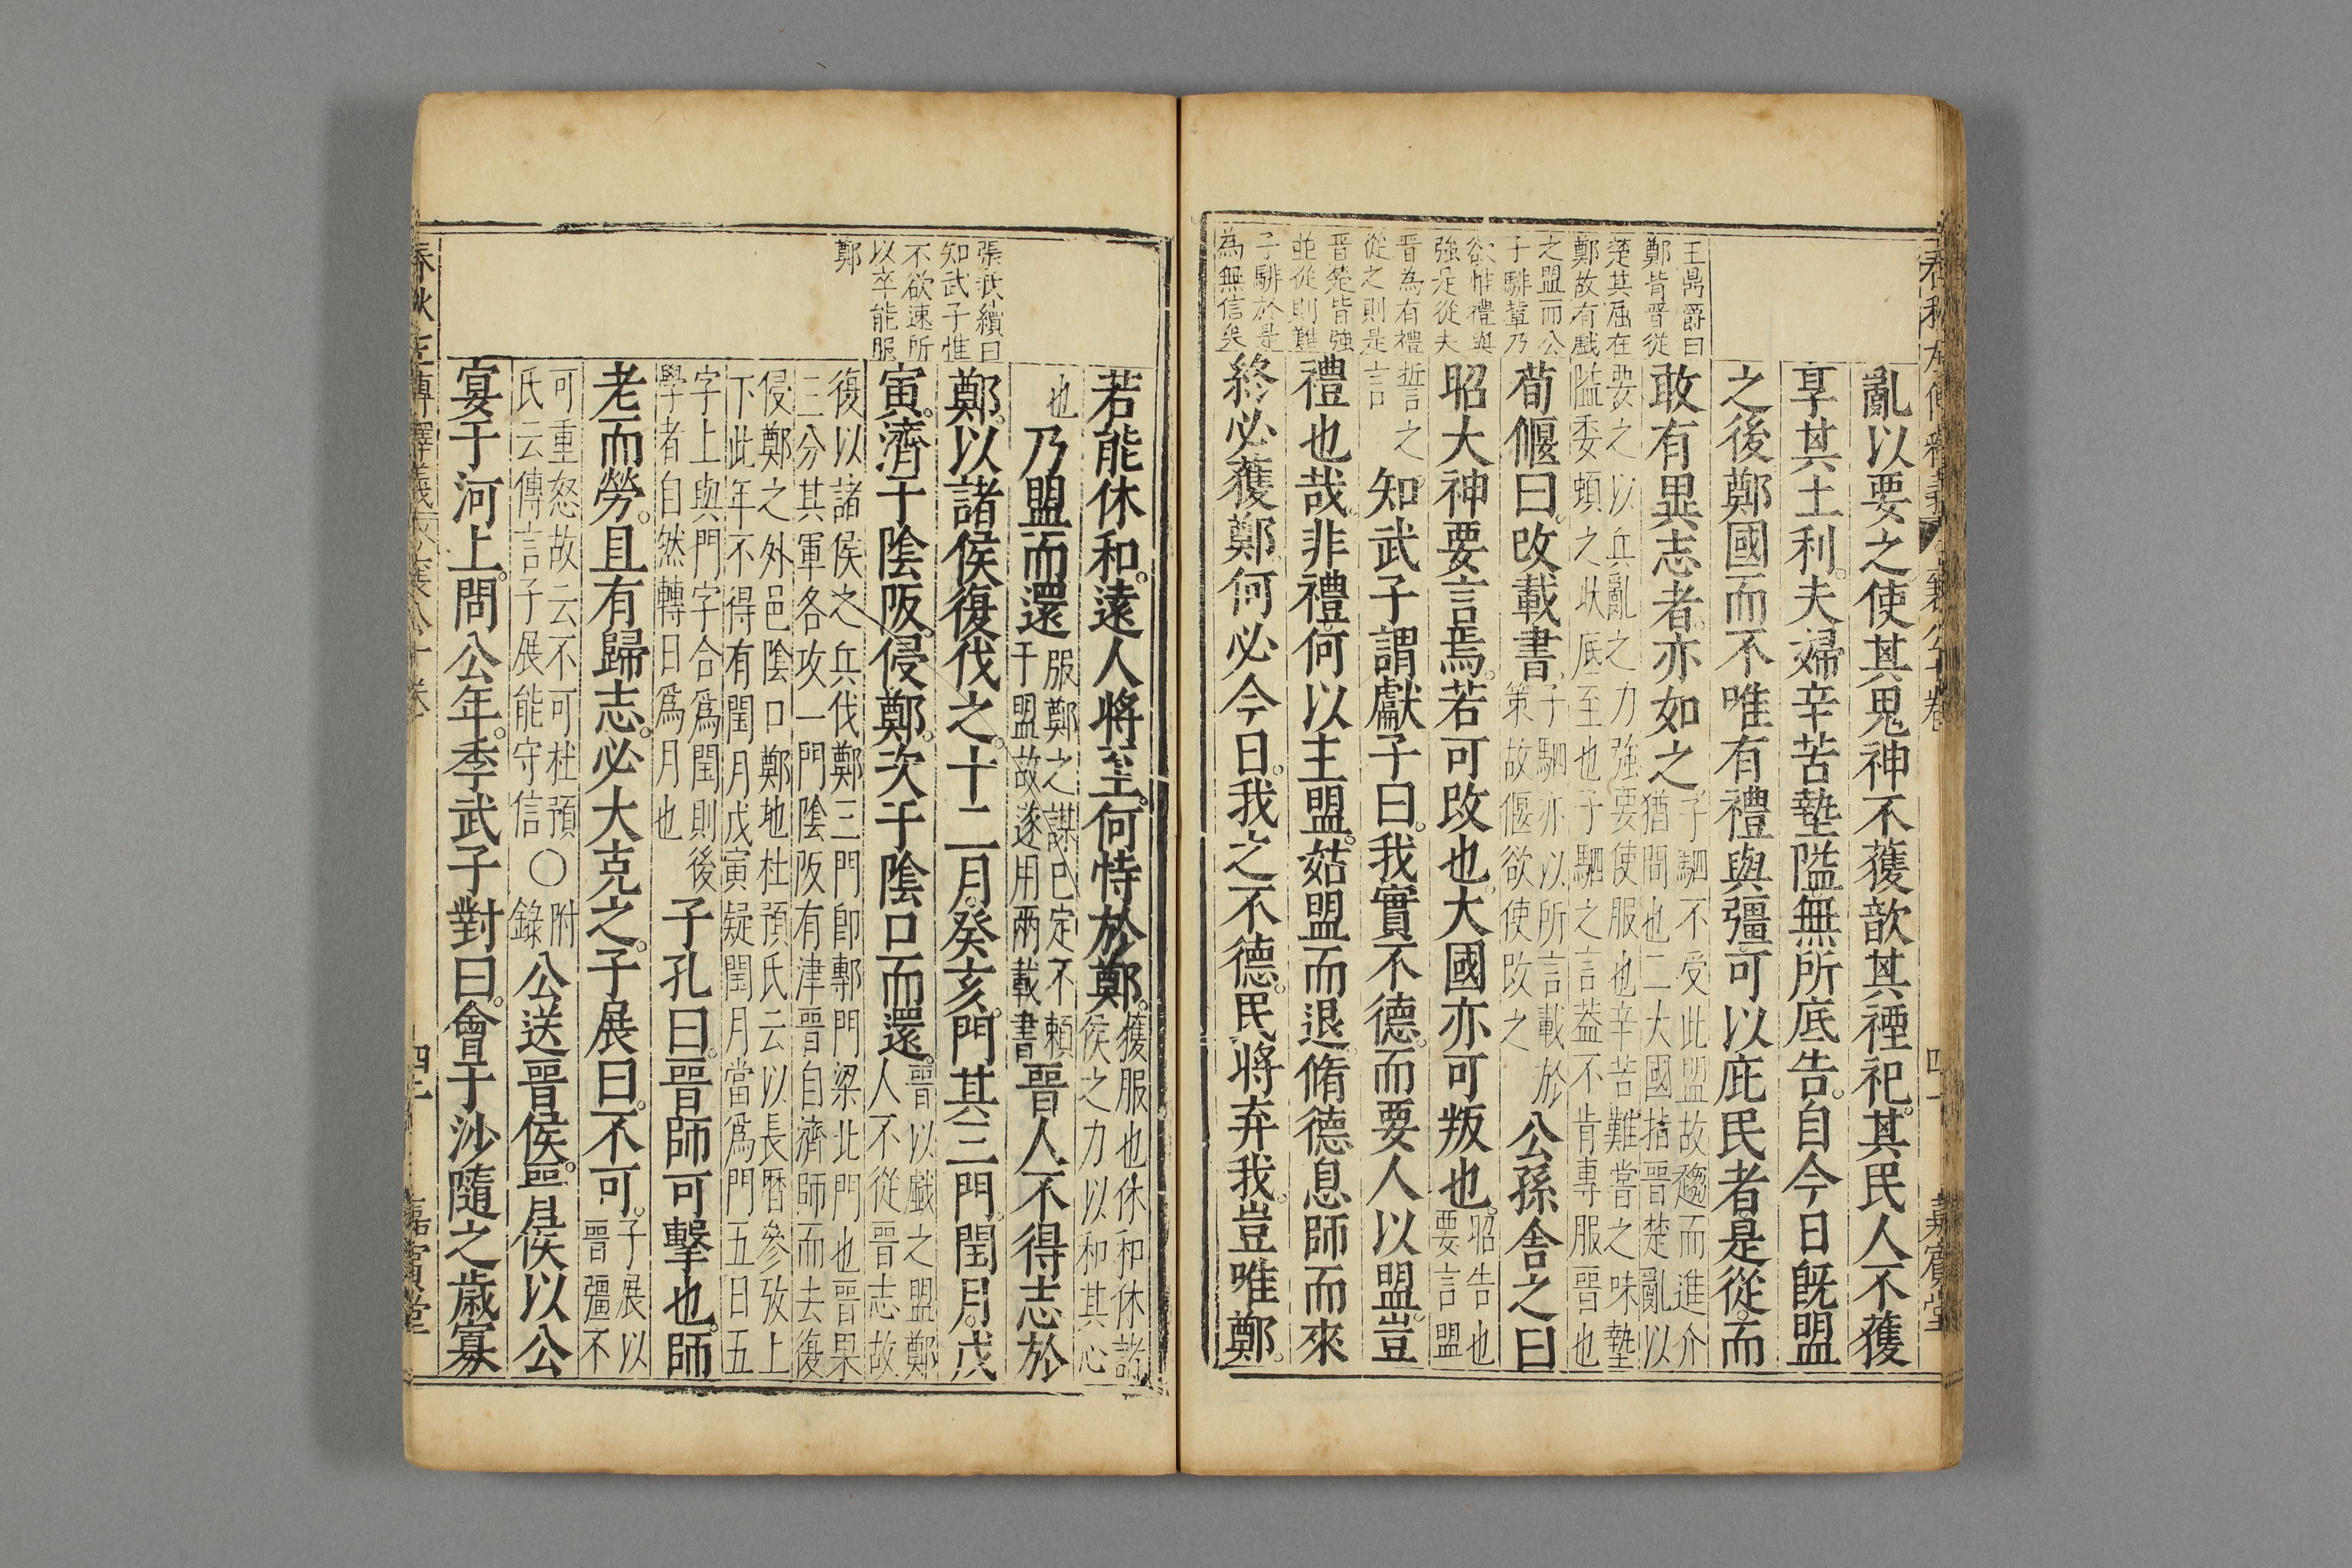 王鼎爵曰
鄭皆晋從
楚其屈在
鄭故有戲
之盟而公
子騑輩乃
欲惟禮與
強是從夫
晋為有禮
從之則是
晋楚皆強
並從則難
子騑於是
為無信矣
亂以要之使其鬼神不獲歆其禋祀其民人不獲
享其土利夫婦辛苦墊隘無所底告自今日既盟
之後鄭國而不唯有禮與彊可以庇民者是從而
敢有異志者亦如之子駟不受此盟故趨而進介猶間也二大國指晋楚亂以
要之以兵亂之力強要使服也辛苦難當之味墊隘委頓之狀底至也子駟之言葢不肯專服晋也
荀偃曰改載書子駟亦以所言載於策故偃欲使改之公孫舍之曰
昭大神要言焉若可改也大國亦可叛也昭告也要言盟
誓之言知武子謂獻子曰我實不德而要人以盟豈
禮也哉非禮何以主盟姑盟而退脩德息師而來
終必獲鄭何必今日我之不德民將弃我豈唯鄭
張我續曰
知武子惟
不欲速所
以卒能服
鄭
若能休和遠人將至何恃於鄭獲服也休和休諸侯之力以和其心
也乃盟而還服鄭之謀已定不頼于盟故遂用兩載書晋人不得志於
鄭以諸侯復伐之十二月癸亥門其三門閏月戊
寅濟于陰阪侵鄭次于陰口而還晋以戲之盟鄭人不從晋志故
復以諸侯之兵伐鄭三門卽鄟門梁北門也晋果三分其軍各攻一門陰阪有津晋自濟師而去復
侵鄭之外邑陰口鄭地杜預氏云以長曆參攷上下此年不得有閏月戊寅疑閏月當爲門五日五
字上與門字合爲閏則後學者自然轉日爲月也子孔曰晋師可擊也師
老而勞且有歸志必大克之子展曰不可子展以晋彊不
可重怒故云不可杜預氏云傳言子展能守信○附錄公送晋侯晋侯以公
宴于河上問公年季武子對曰會于沙隨之歲寡
四十二
嘉賓堂